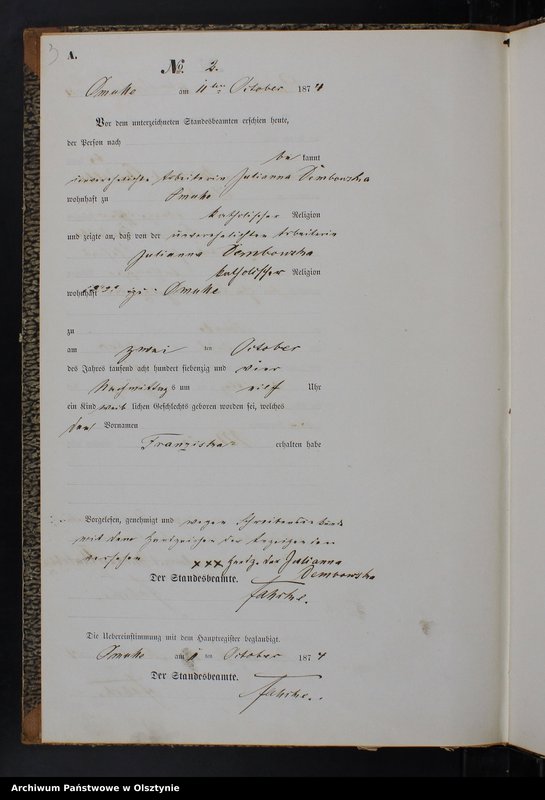 3
A.
No. 2.
am 11ten October 1874
Vor dem unterzeichneten Standesbeamten erschien heute,
der Person nach
be kannt
unverehelichte Arbeiterin Julianna Dembowska
wohnhaft zu
katholischer Religion
und zeigte an, daß von der unverehelichten Arbeiterin
Julianna Dembowska
katholischer Religion
wohnhaft
zu
am zwei ten October
des Jahres tausend acht hundert siebenzig und vier
Nachmittag s um elf Uhr
ein Kind weib lichen Geschlechts geboren worden sei, welches
den Vornamen
Franziska erhalten habe
Vorgelesen, genehmigt und wegen
mit dem Handzeichen der
versehen
xxx Handz. der Julianna
Dembowska
Der Standesbeamte.
Die Uebereinstimmung mit dem Hauptregister beglaubigt.
am 11 ten October 1874
Der Standesbeamte.
Archiwum Państwowe w Olsztynie